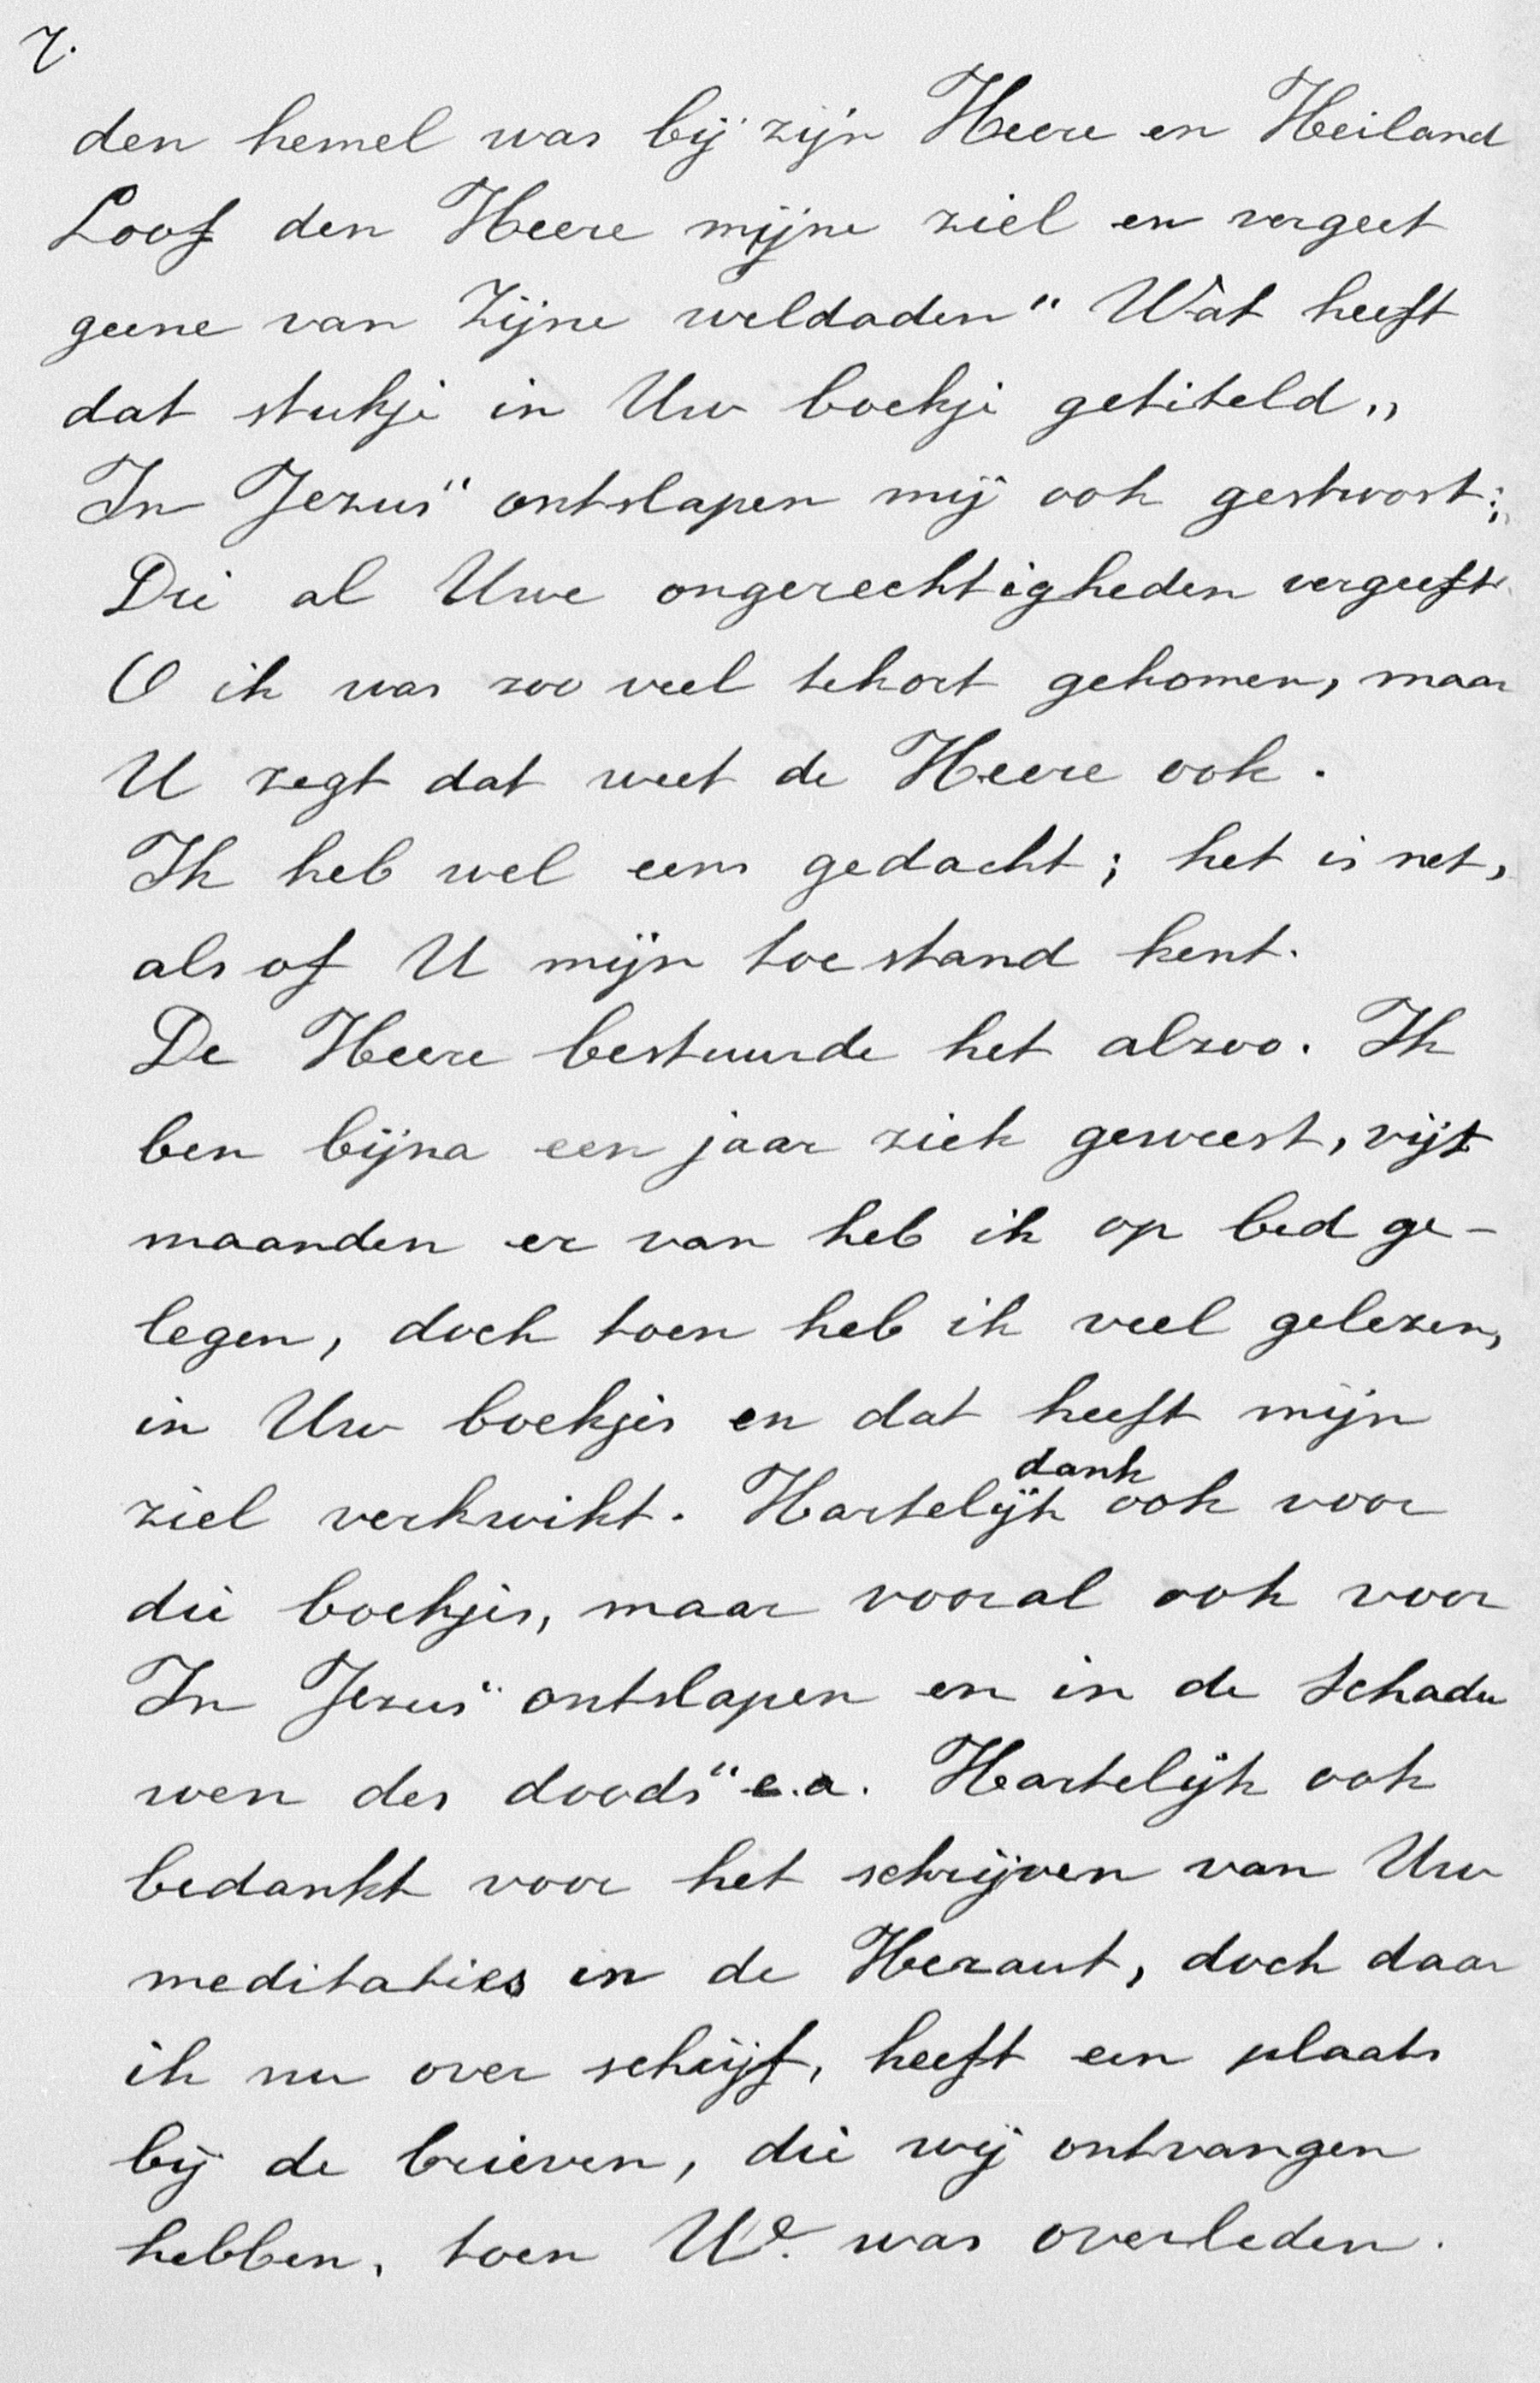 7.
den hemel was bij zijn Heere en Heiland
Loof den Heere mijne ziel en vergeet
geene van Zijne weldaden" Wat heeft
dat stukje in Uw boekje getiteld „
In Jezus" ontslapen mij ook gestroost:„
Die al Uwe ongerechtigheden vergeeft
O ik was zoo veel tekort gekomen, maar
U zegt dat weet de Heere ook.
Ik heb wel eens gedacht; het is net,
als of U mijn toestand kent.
De Heere bestuurde het alzoo. Ik
ben bijna een jaar ziek geweest, vijf
maanden er van heb ik op bed ge-
legen, doch toen heb ik veel gelezen,
in Uw boekjes en dat heeft mijn
ziel verkwikt. Hartelijk dank ook voor
die boekjes, maar vooral ook voor
In Jezus" ontslapen en in de Schadu
wen des doods" e.a. Hartelijk ook
bedankt voor het schrijven van Uw
meditaties in de Heraut, doch daar
ik nu over schrijf, heeft een plaats
bij de brieven, die wij ontvangen
hebben, toen W. was overleden.